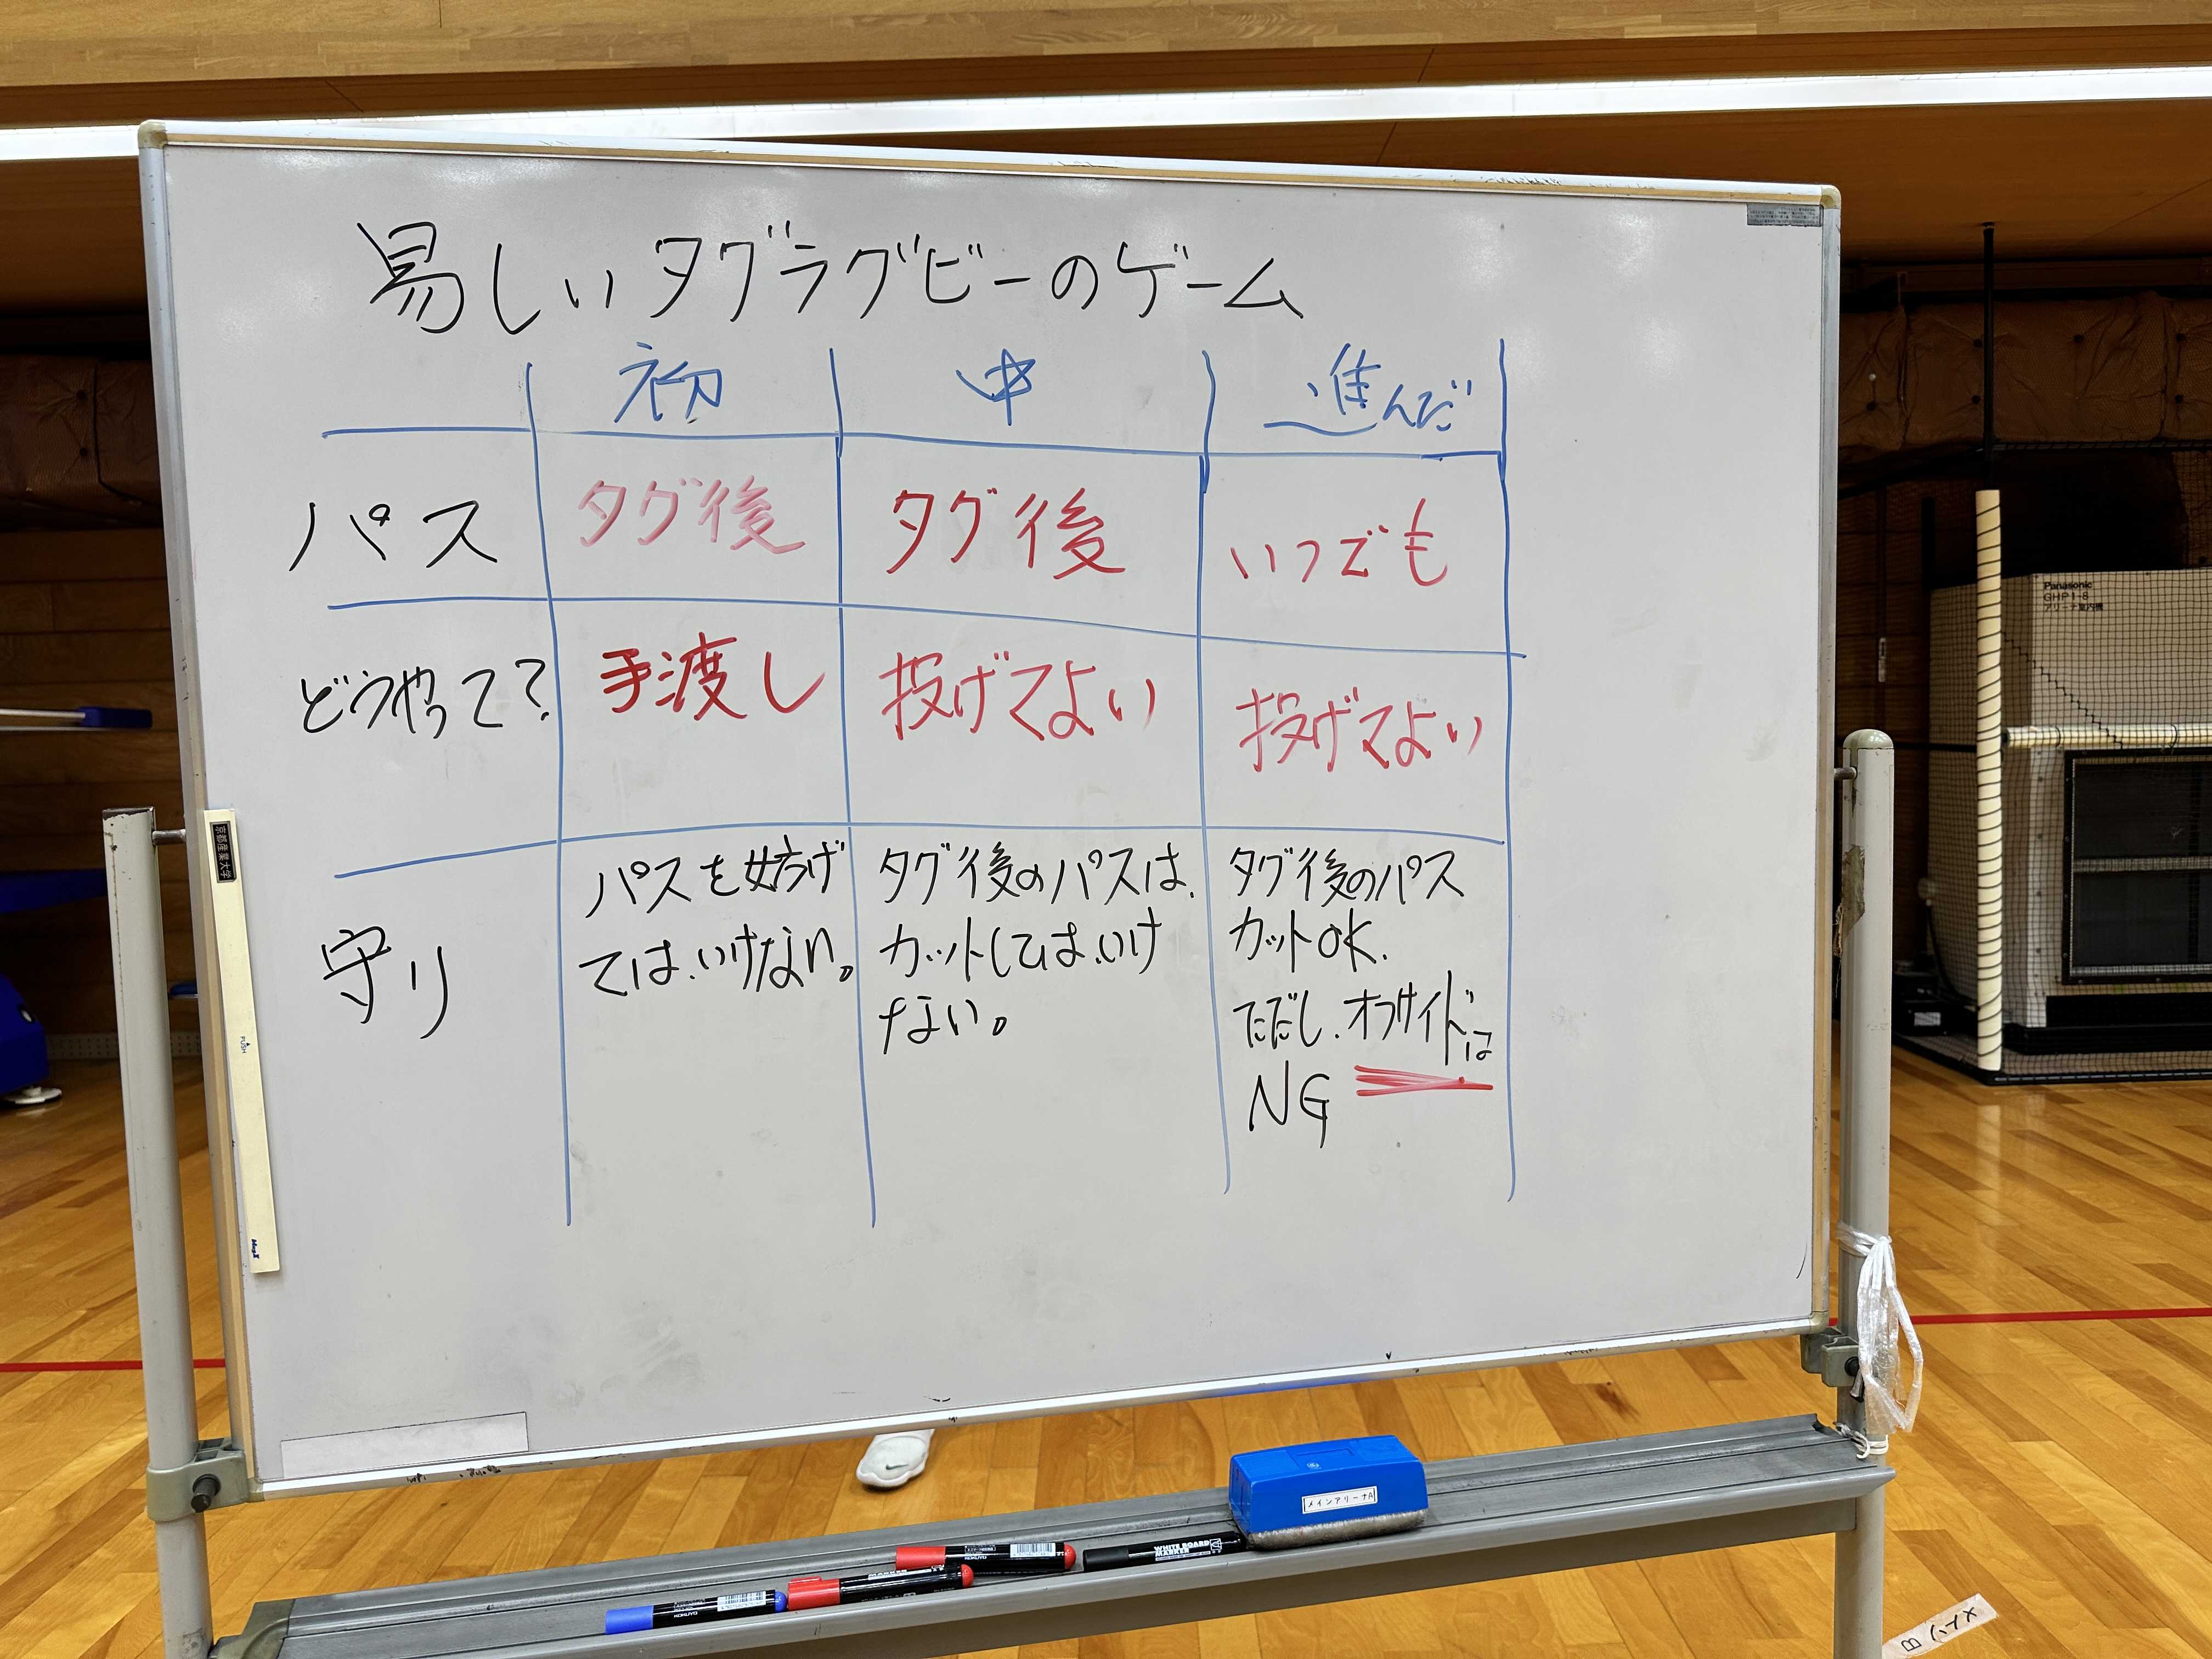 易しいタグラグビーのゲーム
初 中 進んだ
パス タグ後 タグ後 いつでも
どうやって? 手渡し 投げてよい 投げてよい
守り
パスを妨げ
ては、いけない。
タグ後のパスは、
カットしては、いけ
ない。
タグ後のパス
カットOK.
ただし、オフサイドは
NG
京都産業大学
PUSH
Panasonic
GHP I-8
アリーナ室内機
メインアリーナA
WHITE BOARD
MARKER
Bハイメ